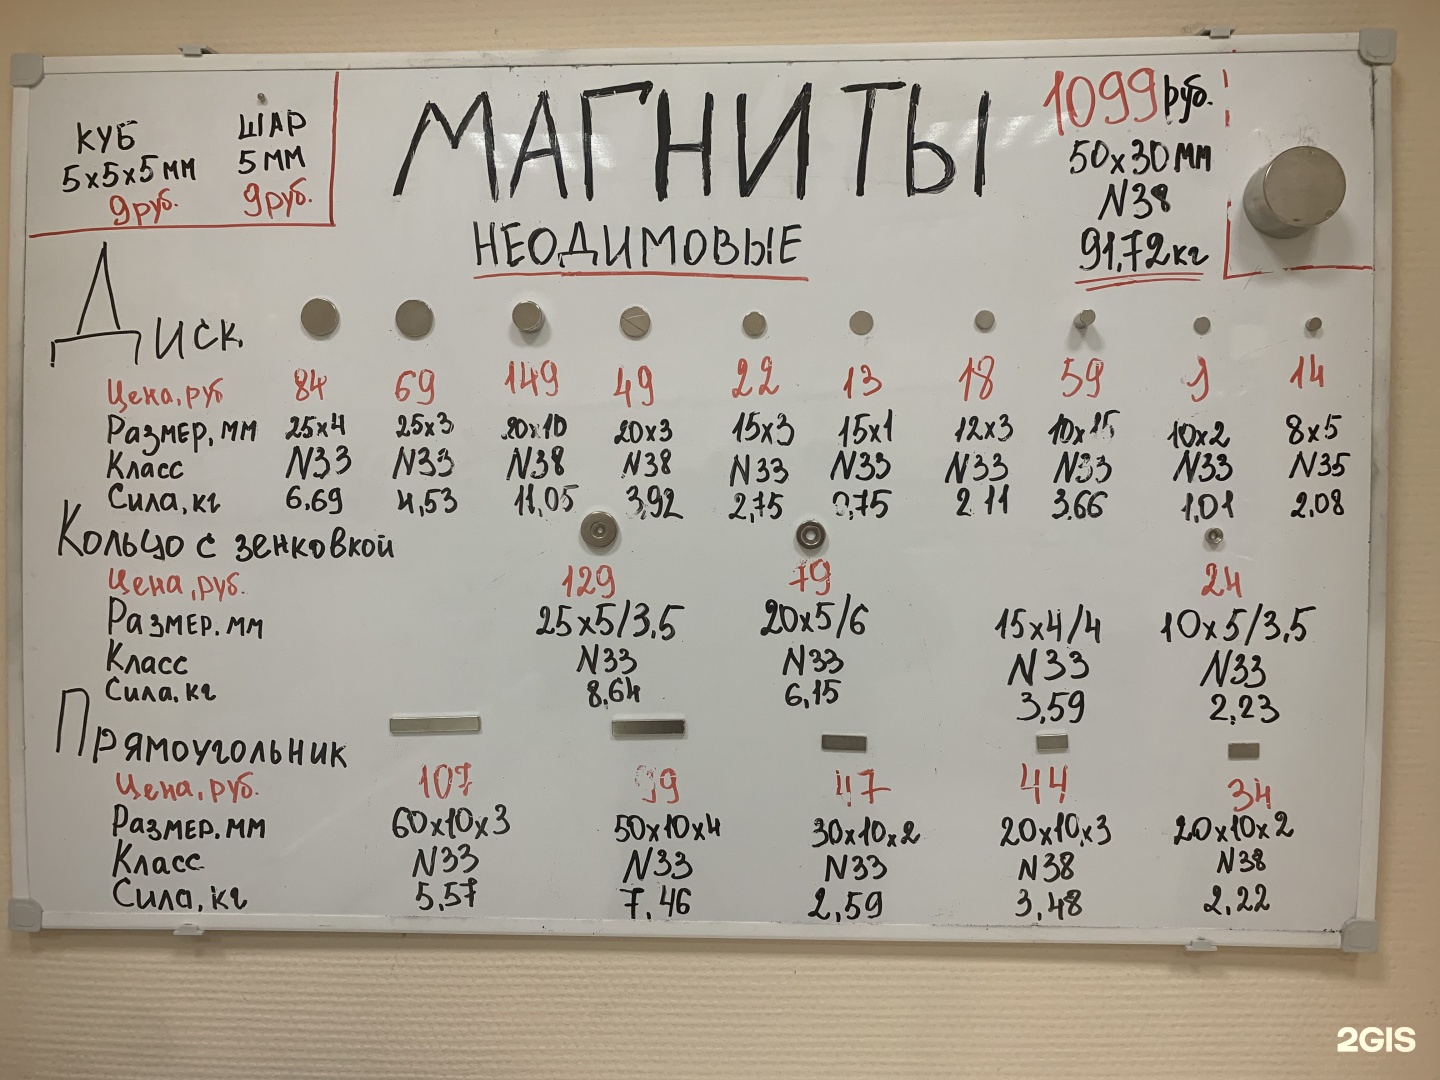 КУБ
5x5x5 мм
9 руб.
ШАР
5 мм
9 руб.
МАГНИТЫ
НЕОДИМОВЫЕ
1099 руб.
50x30 мм
N38
91,72 кг
Диск
Цена, руб 84 69 149 49 22 13 18 59 9 14
Размер, мм 25x4 25x3 20x10 20x3 15x3 15x1 12x3 10x15 10x2 8x5
Класс N33 N33 N38 N38 N33 N33 N33 N33 N33 N35
Сила, кг 6,69 4,53 11,05 3,92 2,75 0,75 2,11 3,66 1,01 2,08
Кольцо с зенковкой
Цена, руб. 129 79 24
Размер. мм 25x5/3,5 20x5/6 15x4/4 10x5/3,5
Класс N33 N33 N33 N33
Сила, кг 8,64 6,15 3,59 2,23
Прямоугольник
Цена, руб. 107 99 47 44 34
Размер. мм 60x10x3 50x10x4 30x10x2 20x10x3 20x10x2
Класс N33 N33 N33 N38 N38
Сила, кг 5,57 7,46 2,59 3,48 2,22
2GIS